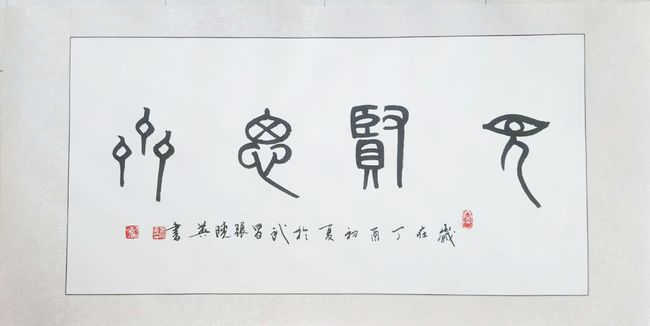 見賢思齊
歲在丁酉初夏於武昌張曉英書